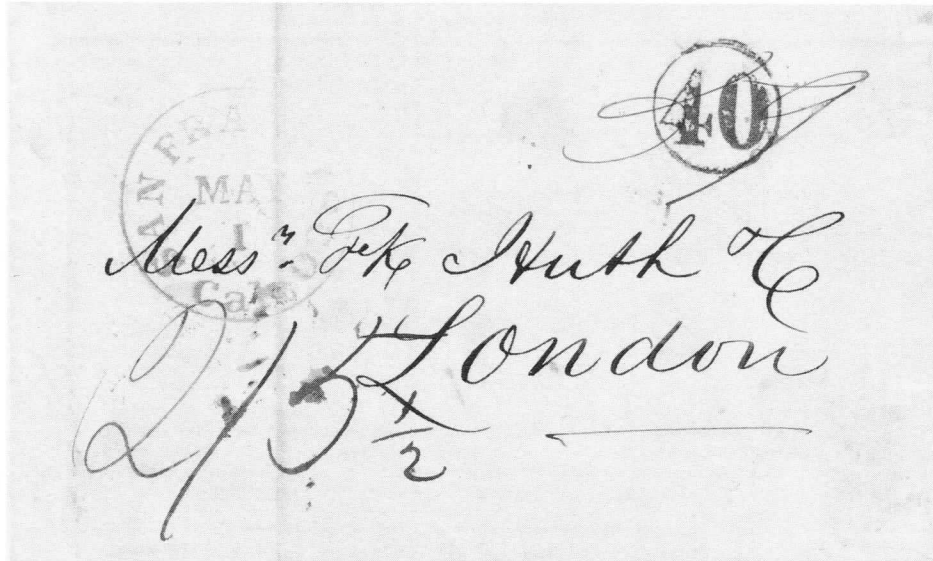 40
SAN FRA
MAY
1
Cal
Mess.rs Fk Huth & C
London
2/5 1/2